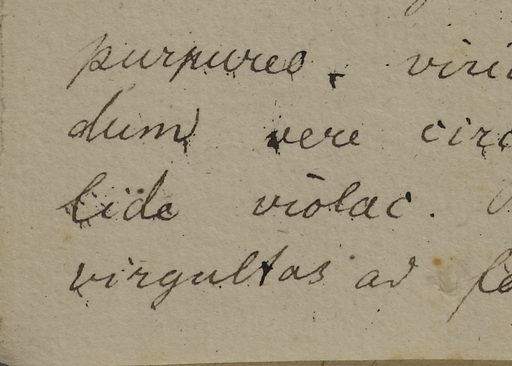 purpureo, viri
dum vere circ
lide violac.
virgultas ad fe